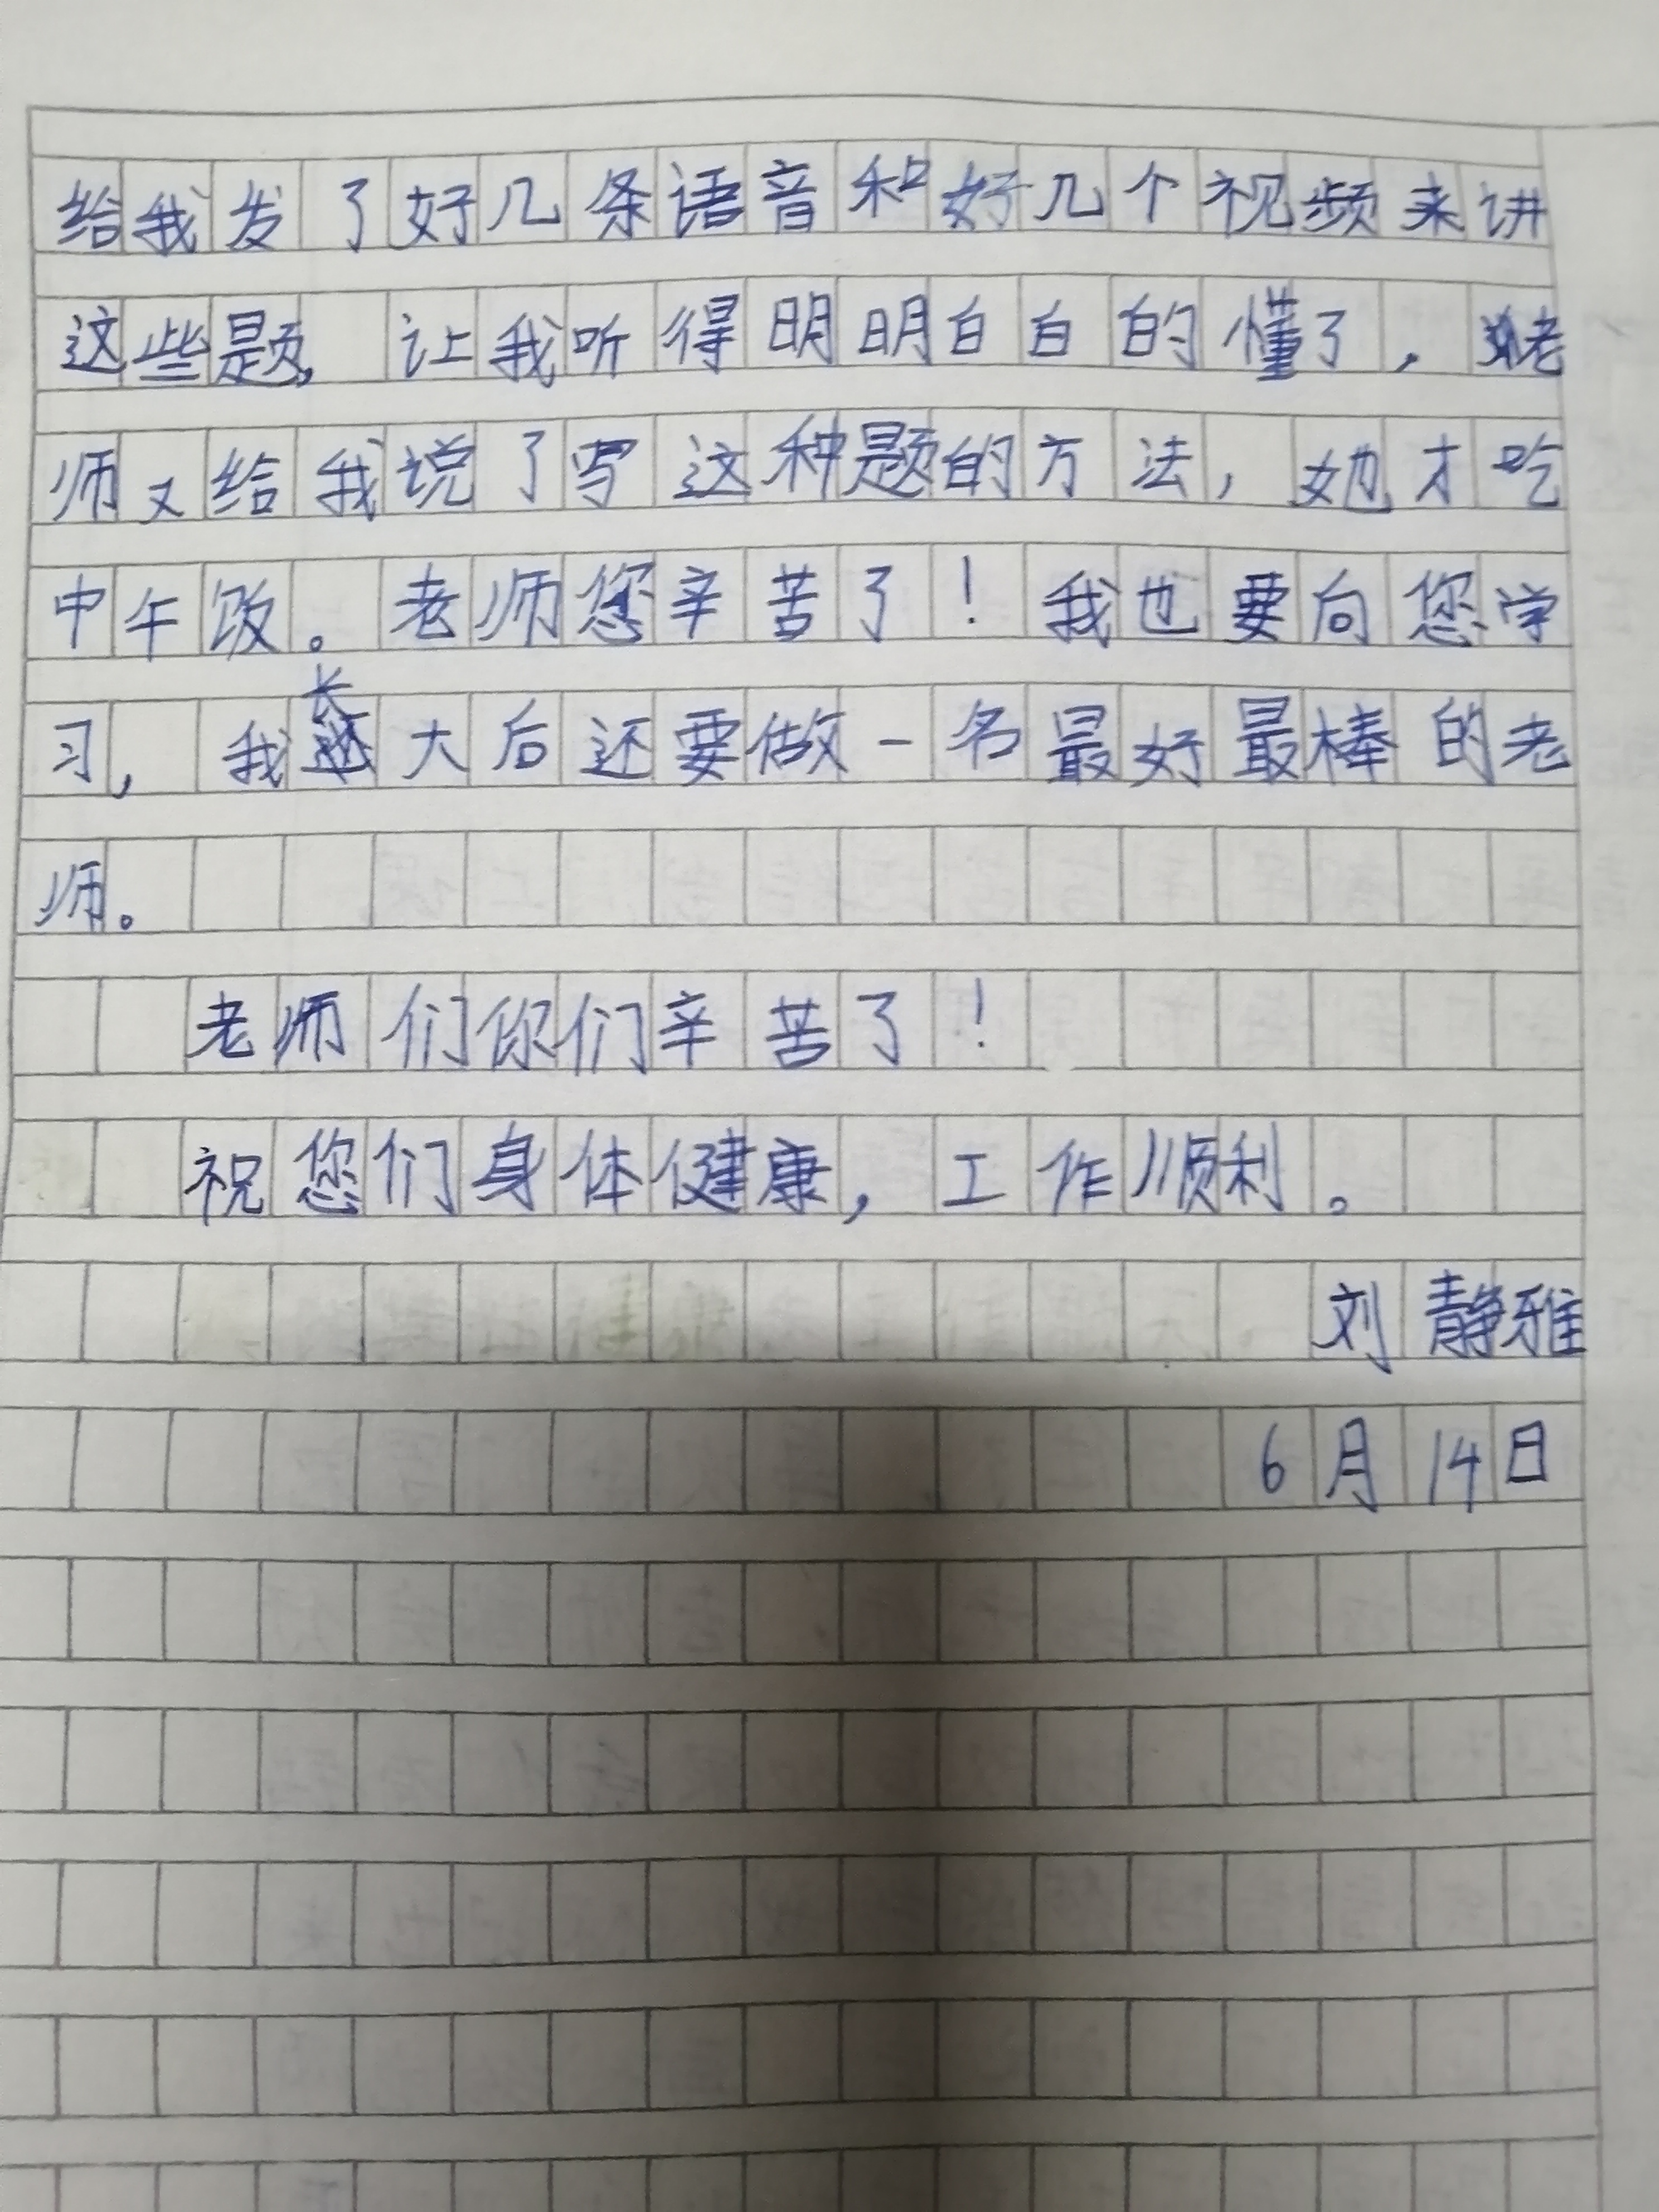 给我发了好几条语音和好几个视频来讲
这些题，让我听得明明白白的懂了，老
师又给我说了写这种题的方法，她才吃
中午饭。老师您辛苦了！我也要向您学
习，我长大后还要做一名最好最棒的老
师。
老师们你们辛苦了！
祝您们身体健康，工作顺利。
刘静雅
6月14日